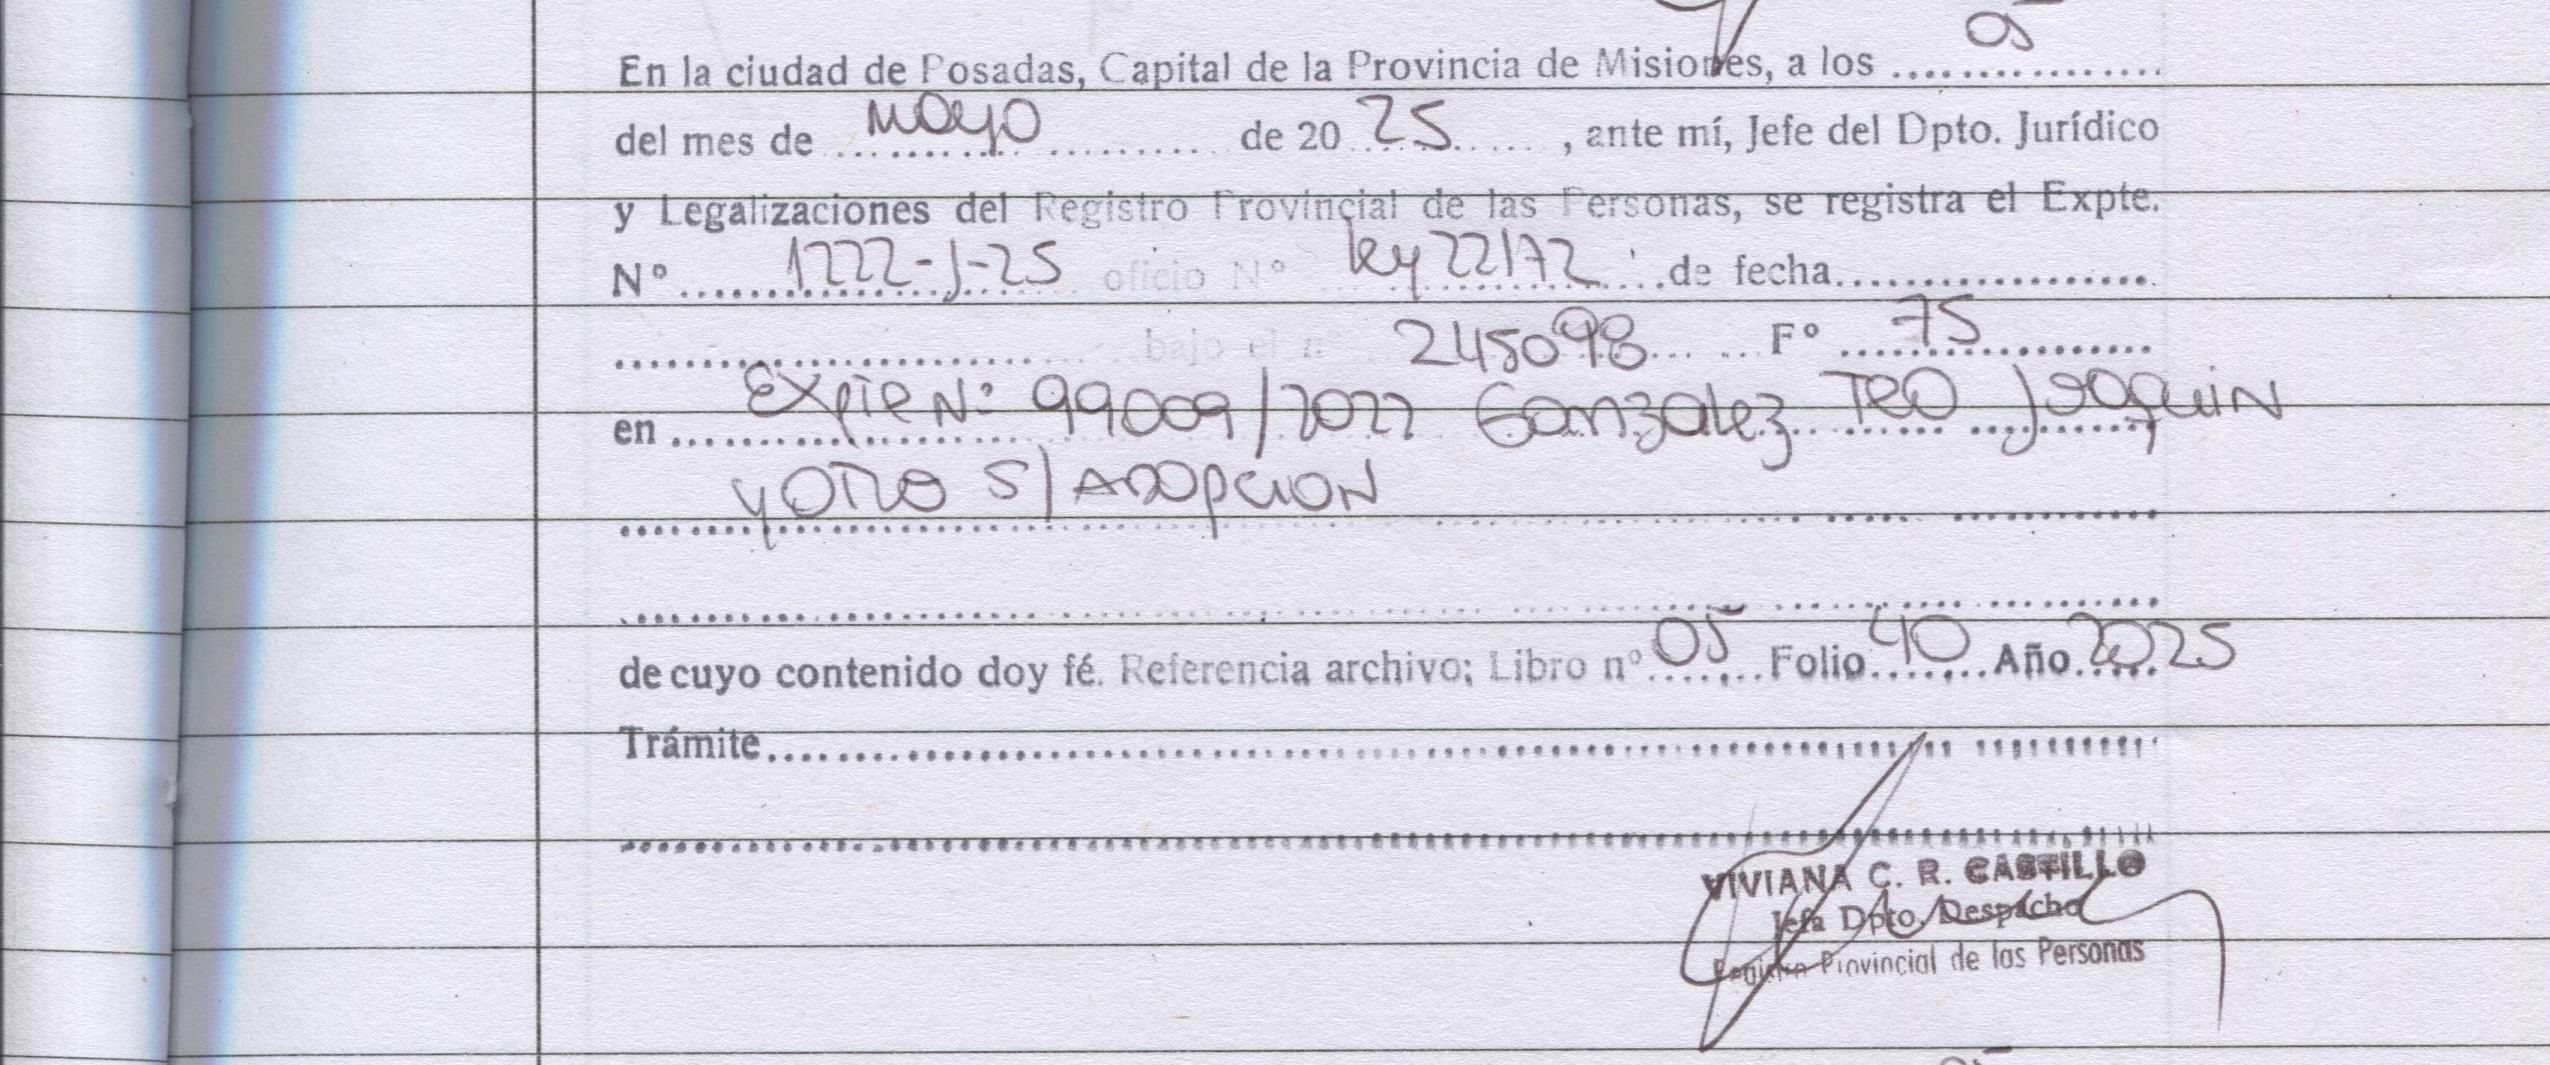 En la ciudad de Posadas, Capital de la Provincia de Misiones, a los 05
del mes de Mayo de 20 25, ante mí, Jefe del Dpto. Jurídico
y Legalizaciones del Registro Provincial de las Personas, se registra el Expte.
Nº 1222-J-25 oficio Nº ley 22172 de fecha
bajo el nº 245098 Fº 75
en Expte Nº 99009/2022 Gonzalez Teo Joaquin
y OTRO S/ ADOPCION
de cuyo contenido doy fé. Referencia archivo; Libro nº 05 Folio 40 Año 2025
Trámite
VIVIANA C. R. CASTILLO
Jefa Dpto. Despacho
Registro Provincial de las Personas